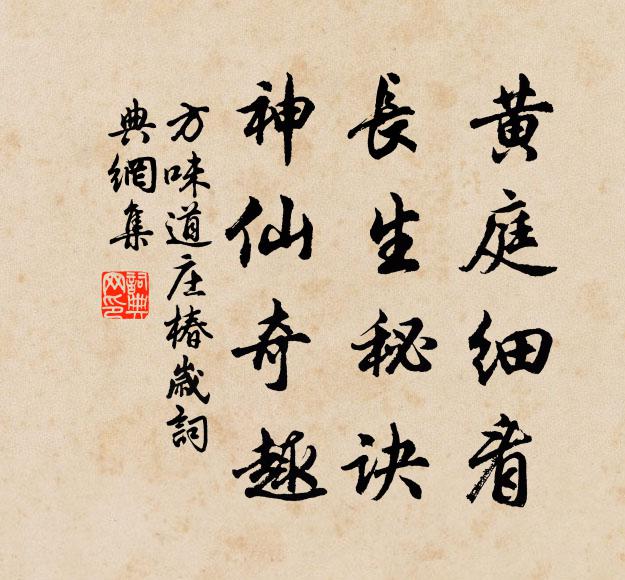 黄庭细看
長生秘诀
神仙奇趣
方味道庄椿嵗詞
典網集
詞典网印